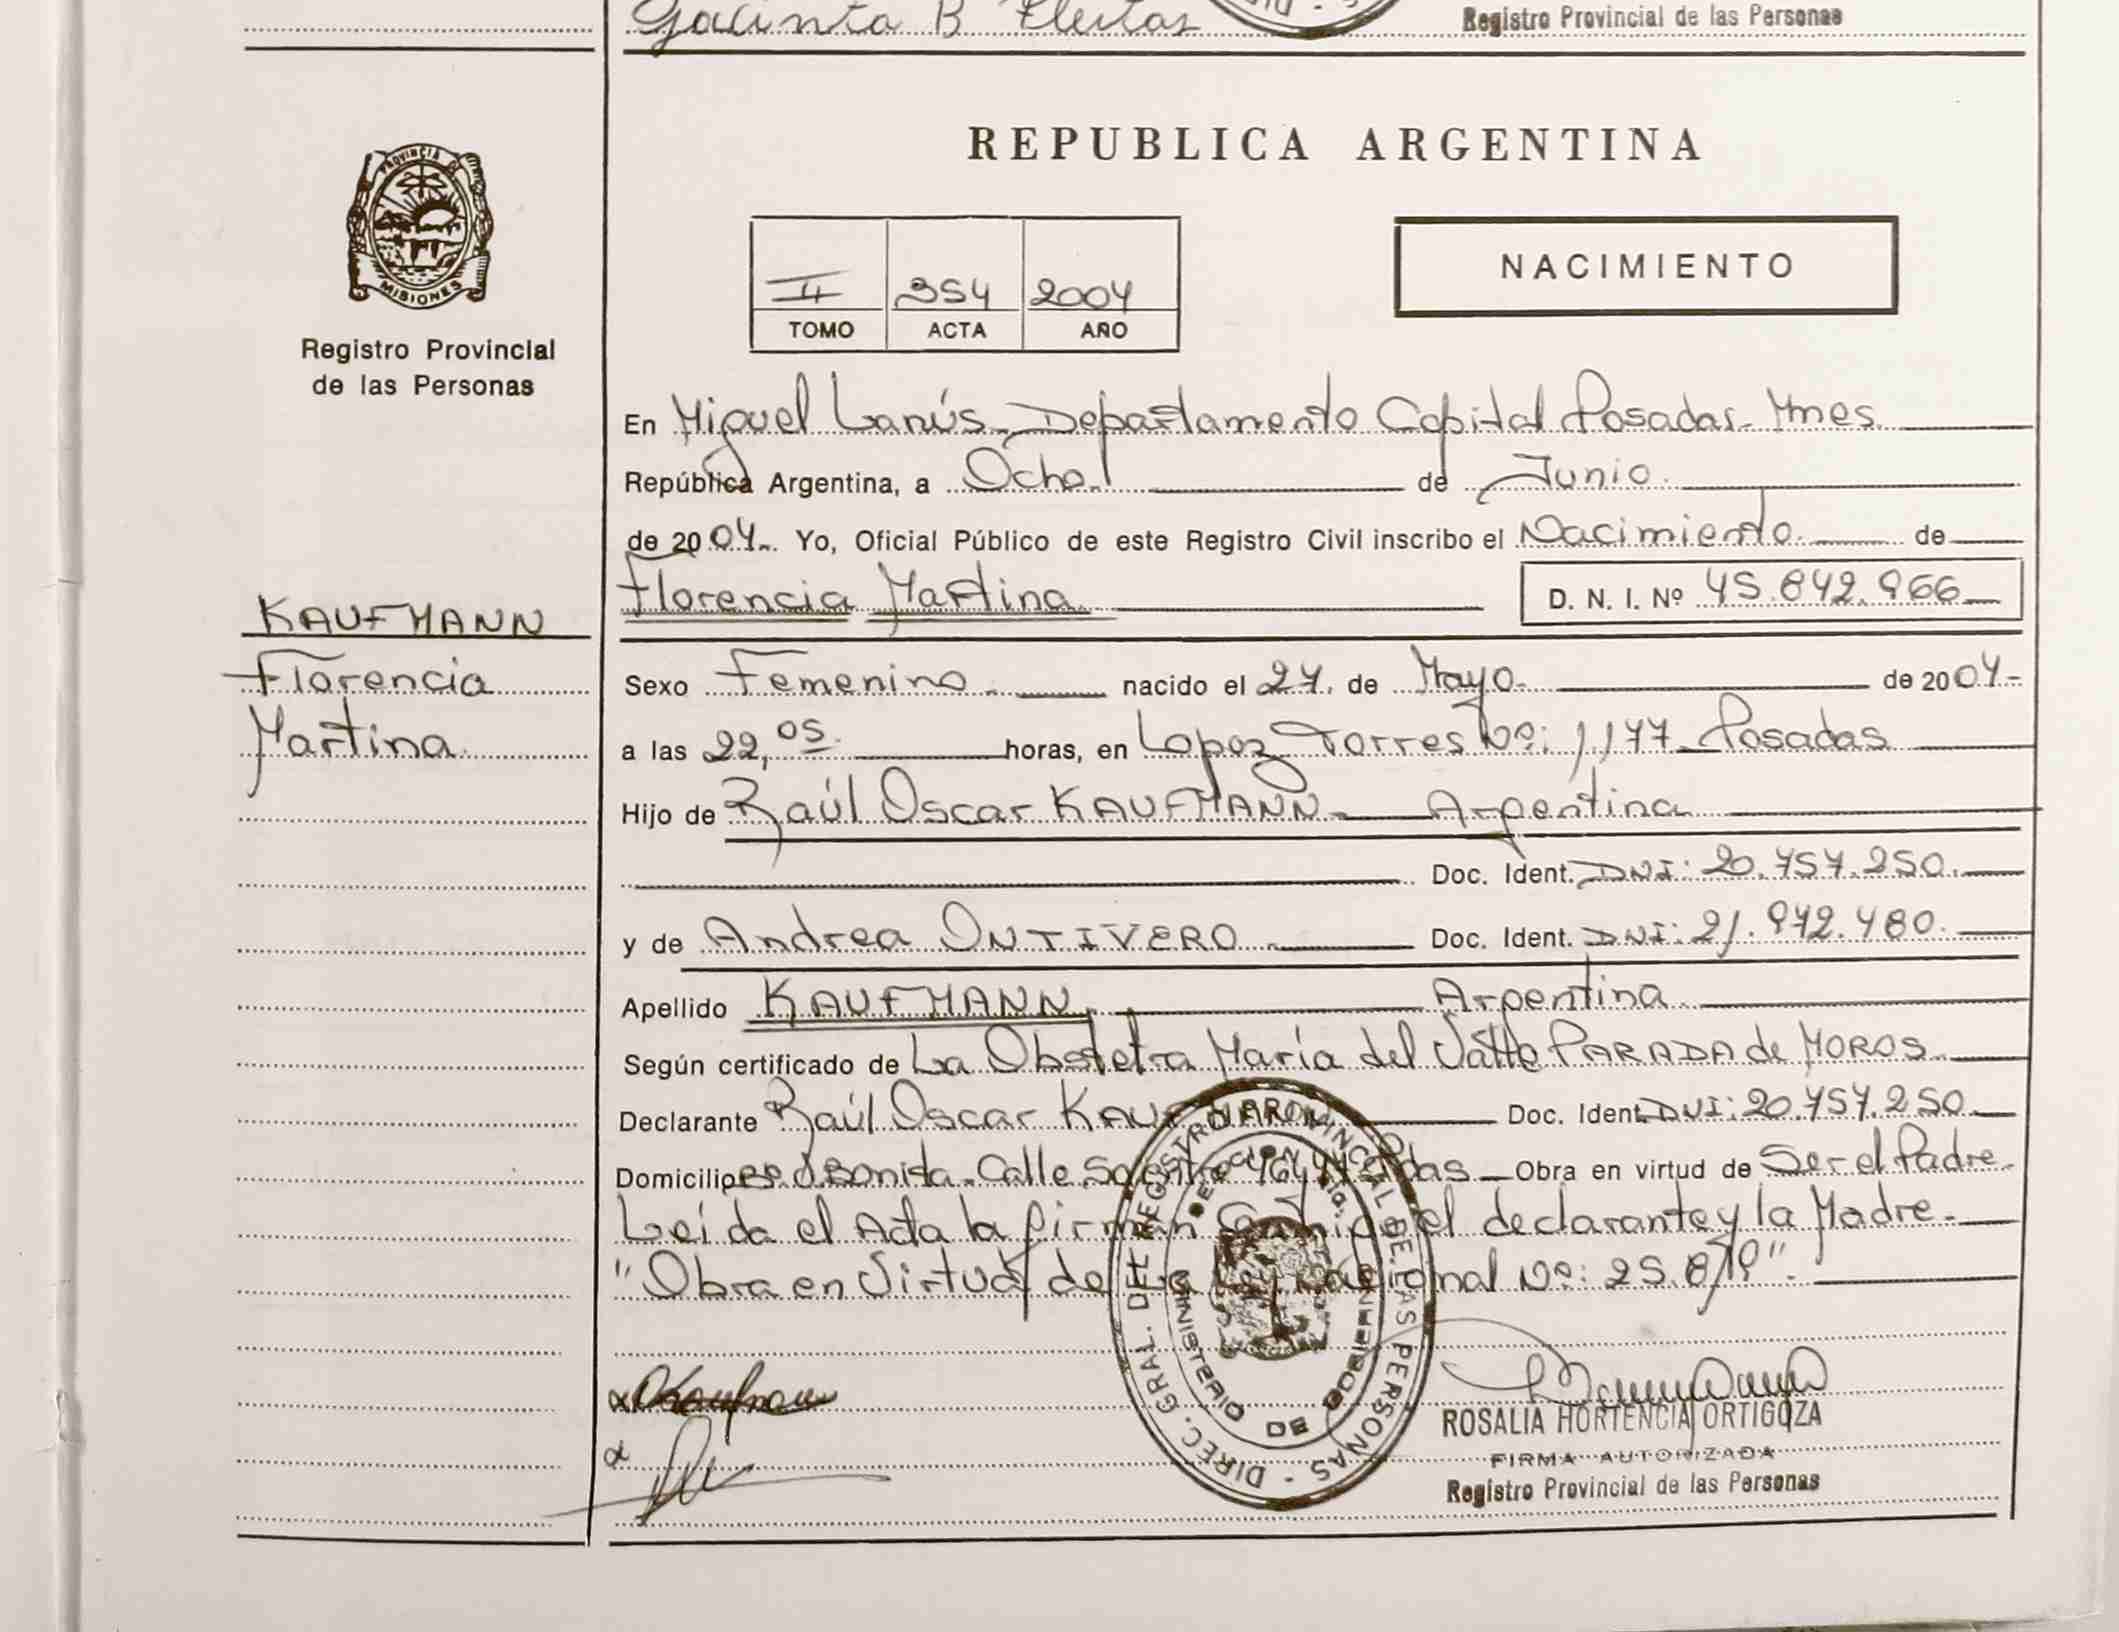 Jacinta B Fleitas
Registro Provincial de las Personas
PROVINCIA DE
MISIONES
Registro Provincial
de las Personas
REPUBLICA ARGENTINA
NACIMIENTO
II 354 2004
TOMO ACTA AÑO
En Miguel Lanús - Departamento Capital Posadas - Mnes
República Argentina, a Ocho de Junio
de 2004. Yo, Oficial Público de este Registro Civil inscribo el Nacimiento de
Florencia Martina D. N. I. Nº 45.842.966
KAUFMANN
Florencia
Martina
Sexo Femenino nacido el 27 de Mayo de 2004
a las 22,05 horas, en Lopez Torres Nº: 1,177 Posadas
Hijo de Raúl Oscar KAUFMANN Argentina
Doc. Ident. DNI: 20.757.250
y de Andrea ONTIVERO Doc. Ident. DNI: 21.972.480
Apellido KAUFMANN Argentina
Según certificado de La Obstetra María del Valle PARADA de MOROS
Declarante Raúl Oscar KAUFMANN Doc. Ident. DNI: 20.757.250
Domicilio Bonita - Calle Obra en virtud de Ser el Padre
Leída el Acta la firman Conmigo el declarante y la Madre.
"Obra en Virtud de La Ley Nacional Nº: 25.819".
DIREC. GRAL. DEL REGISTRO PROVINCIAL DE LAS PERSONAS
MINISTERIO DE GOBIERNO
ROSALIA HORTENCIA ORTIGOZA
FIRMA AUTORIZADA
Registro Provincial de las Personas